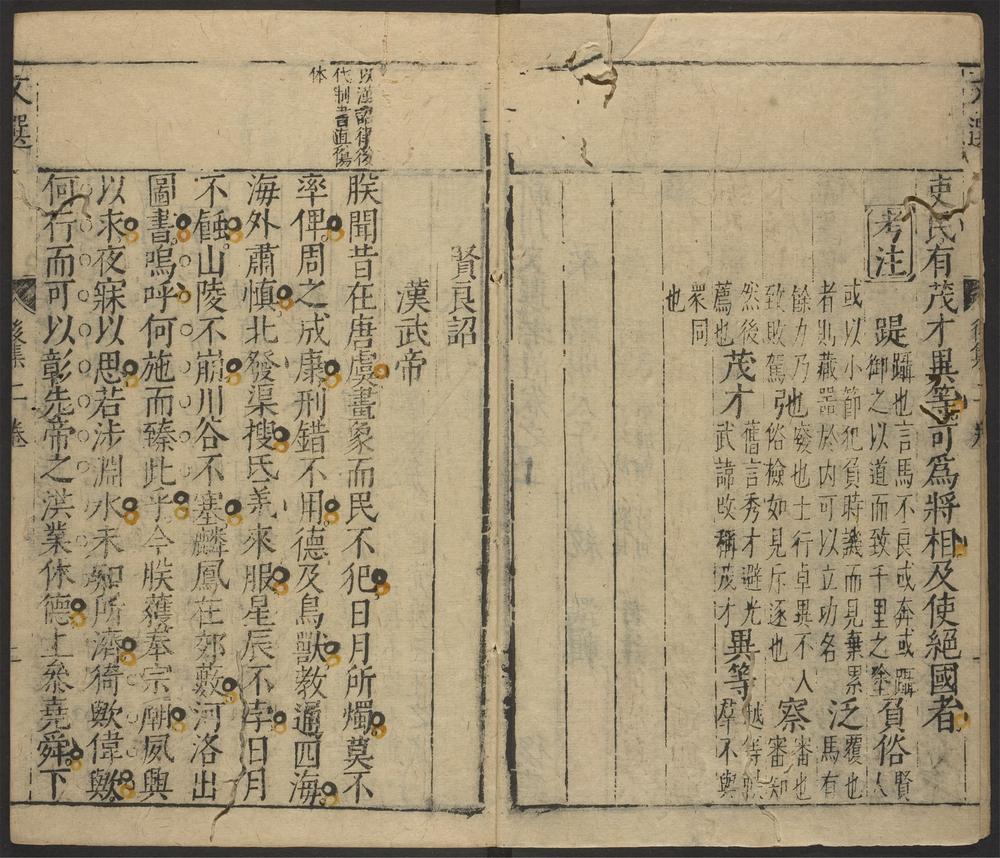 吏民有茂才異等可爲將相及使絕國者
考注
踶躡也言馬不良或奔或躡御之以道而致千里之塗負俗賢人
或以小節犯負時譏而見棄累者則藏器於内可以立功名泛覆也馬有
餘力乃也也士行卓異不人致敗駕俗檢如見斥逐也察審也審知
然後薦也茂才舊言秀才避光武諱改稱茂才異等越等軼羣不與
衆同也
賢良詔
漢武帝
以漢詔律後代制書直傷体
朕聞昔在唐虞畫象而民不犯日月所燭莫不
率俾周之成康刑錯不用德及鳥獸教通四海
海外肅慎北發渠搜氐羌來服星辰不孛日月
不蝕山陵不崩川谷不塞麟鳳在郊藪河洛出
圖書嗚呼何施而臻此乎今朕獲奉宗廟夙興
以來夜寐以思若涉淵水未知所濟猗歟偉歟
何行而可以彰先帝之洪業休德上參堯舜下
文選
後集二卷